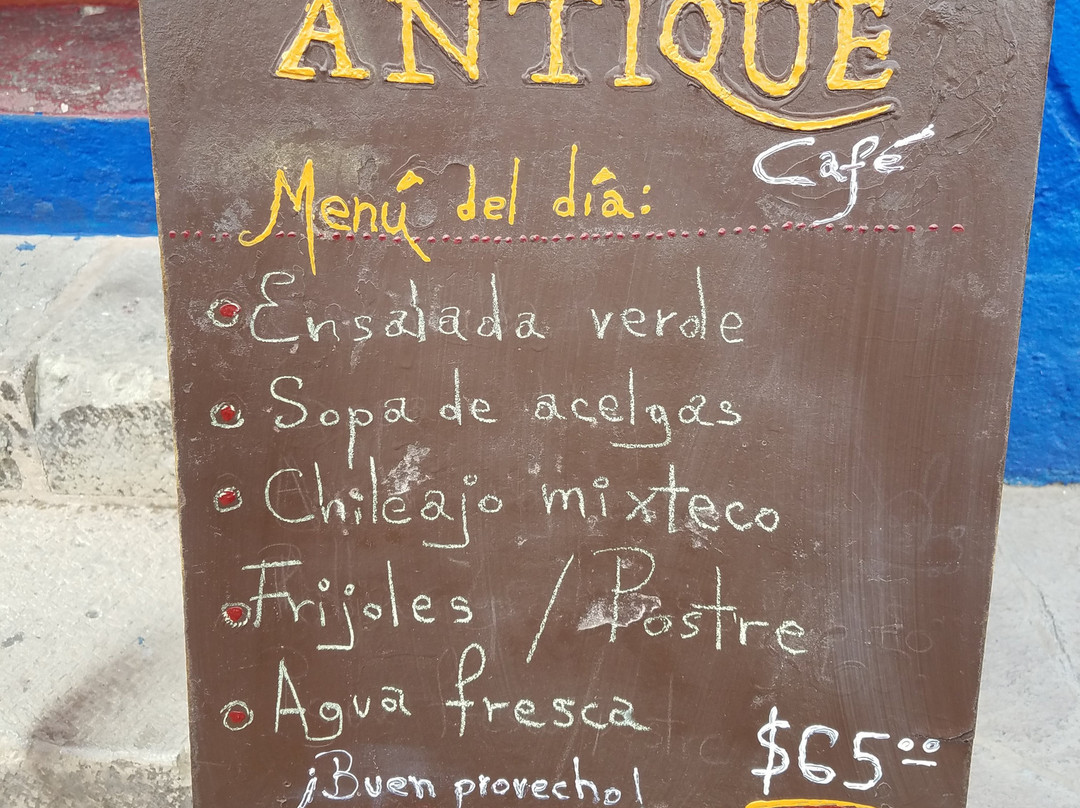 ANTIQUE
Café
Menú del día:
Ensalada verde
Sopa de acelgas
Chileajo mixteco
Frijoles / Postre
Agua fresca
¡Buen provecho!
$65.00